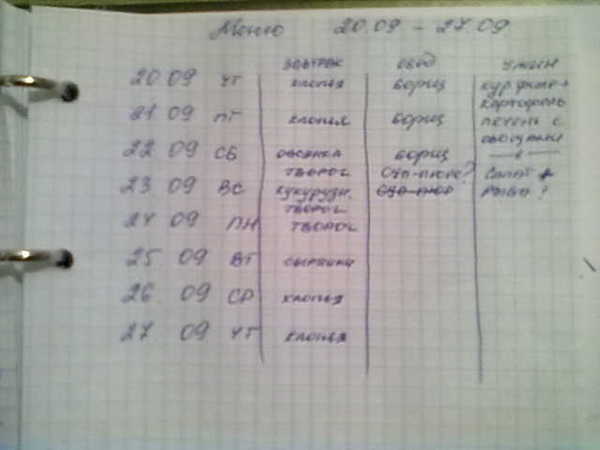 Меню 20.09 - 27.09
завтрак обед ужин
20 09 чт хлопья борщ кур филе +
картофель
21 09 пт хлопья борщ печень с
овощами
22 09 сб овсянка борщ —— " ——
творог суп-пюре? салат +
23 09 вс кукурузн. суп-пюре рыба?
творог
24 09 пн творог
25 09 вт сырники
26 09 ср хлопья
27 09 чт хлопья